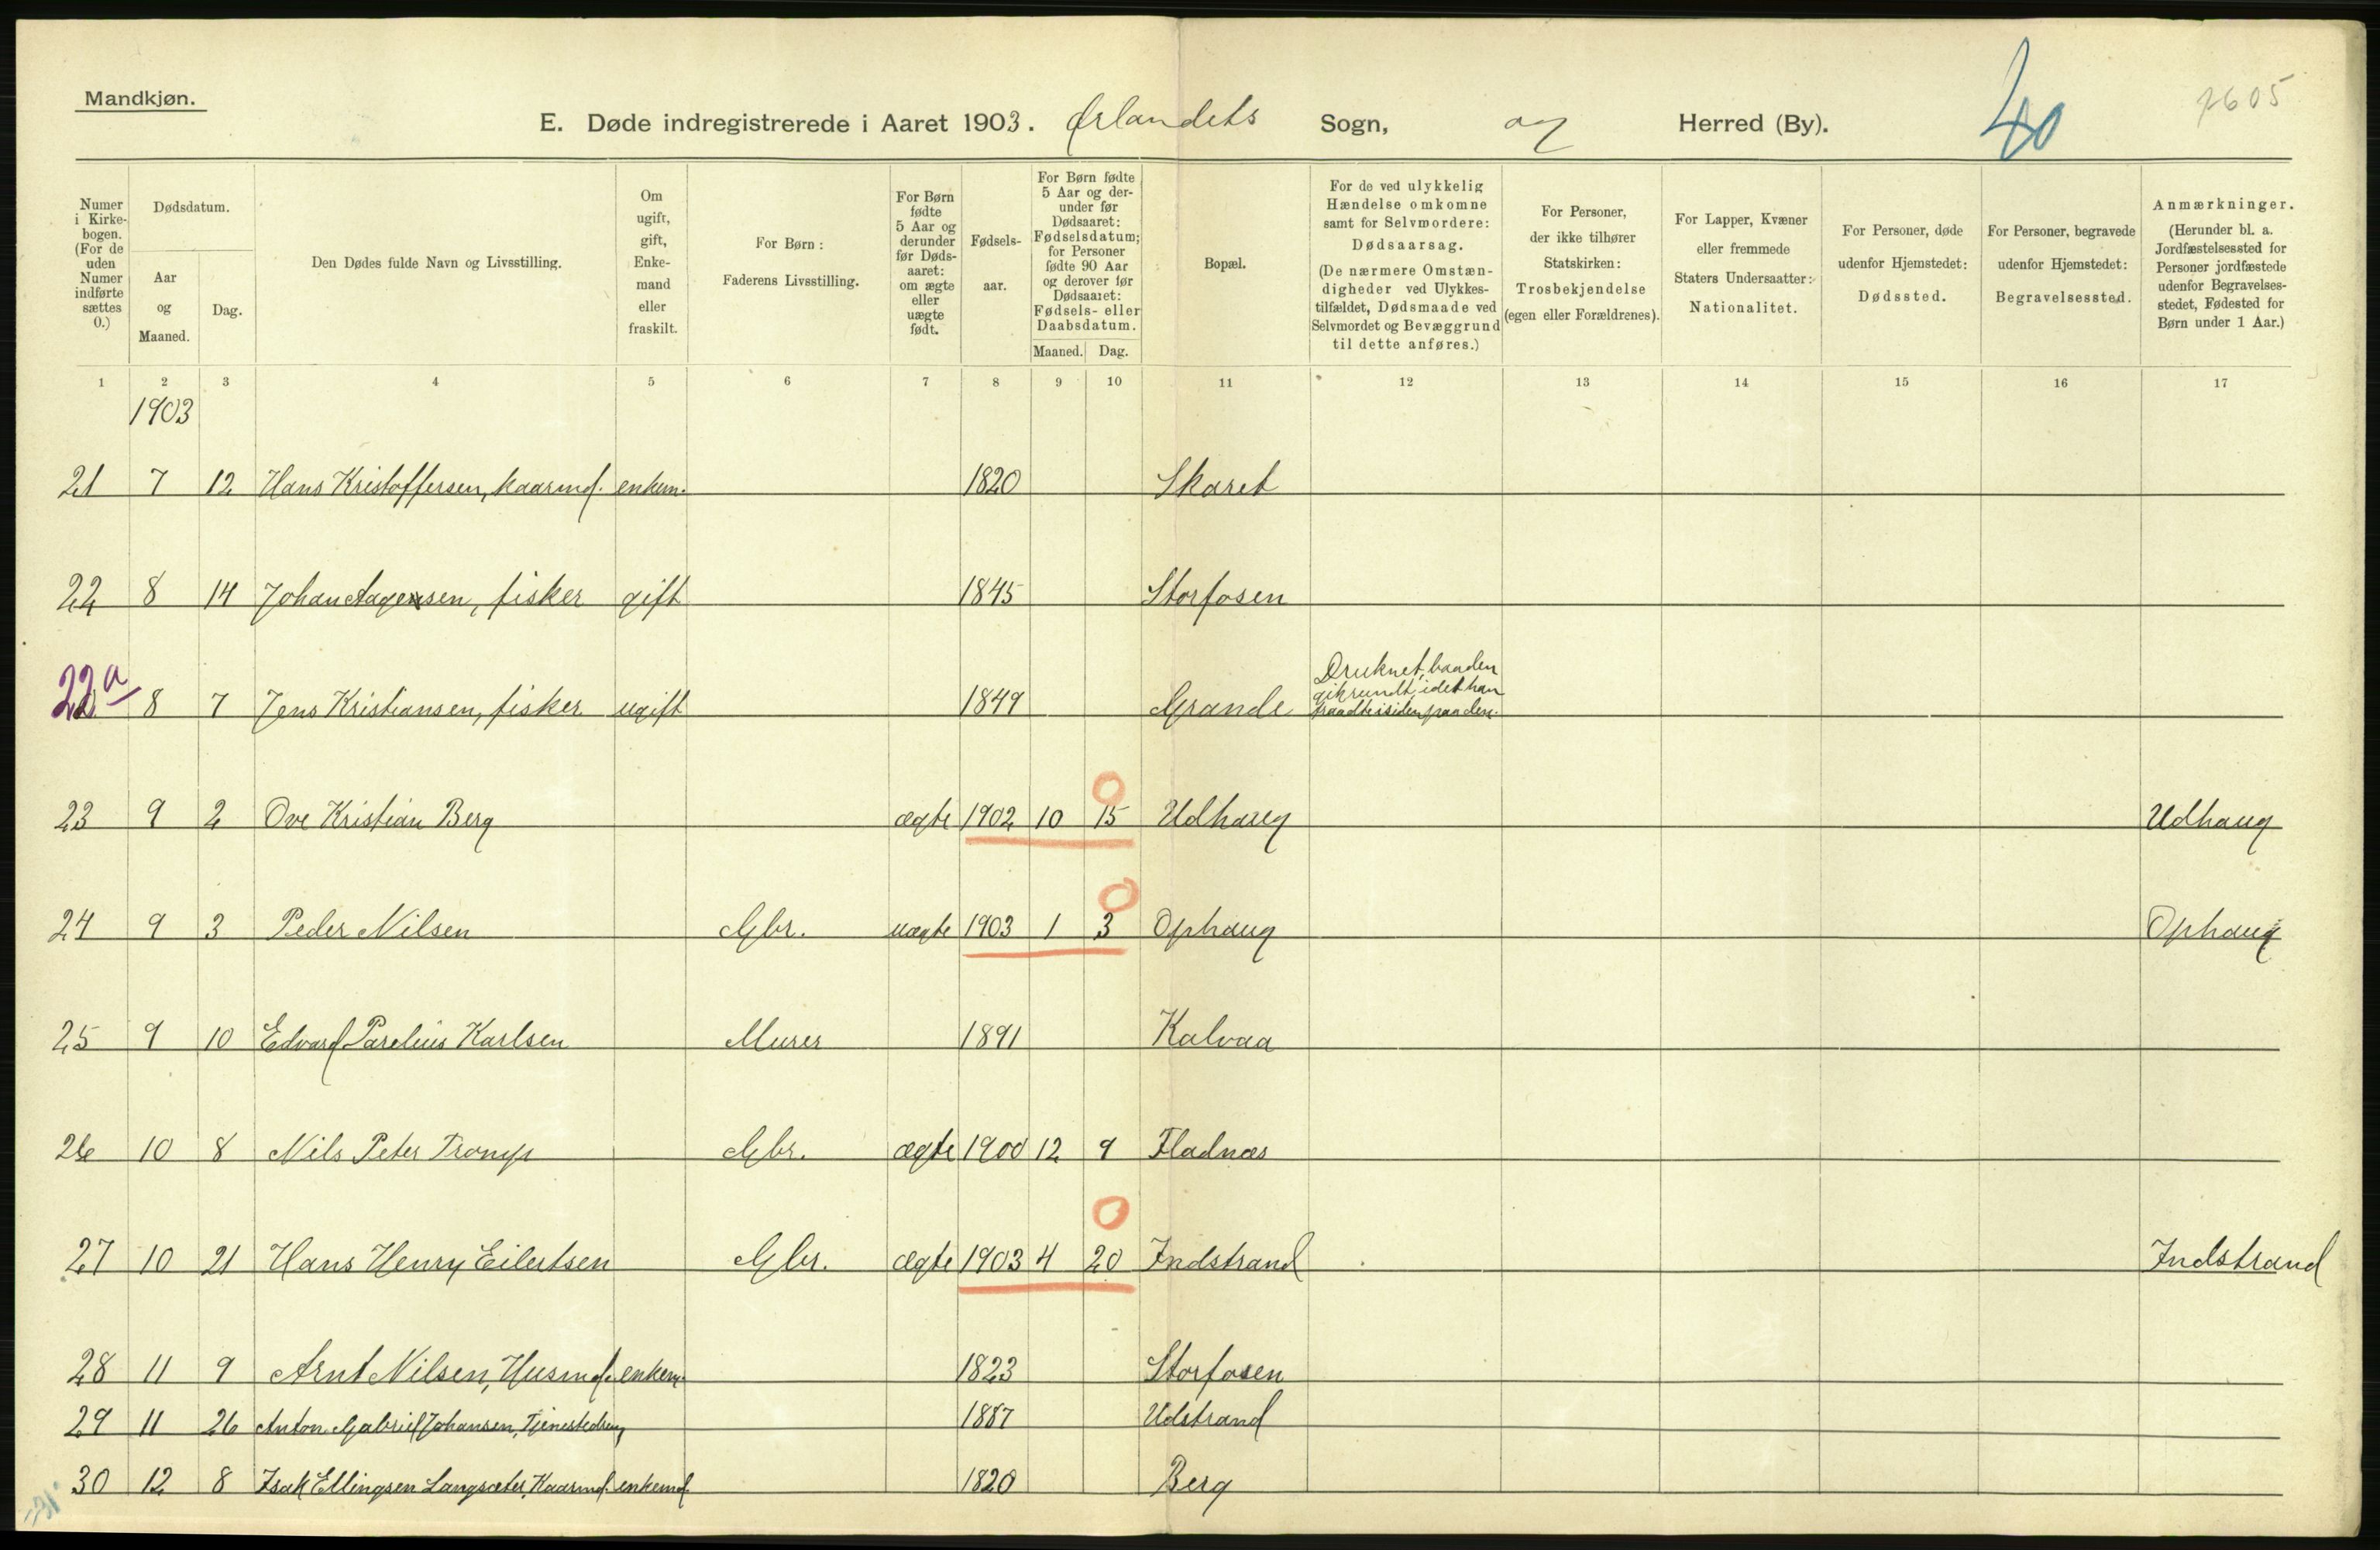 Mandkjøn.
E. Døde indregistrerede i Aaret 1903. Ørlandets Sogn, og Herred (By). 40 2605
Numer i Kirke-bogen. (For de uden Numer indførte sættes 0.)
Dødsdatum.
Aar og Maaned.
Dag.
Den Dødes fulde Navn og Livsstilling.
Om ugift, gift, Enke-mand eller fraskilt.
For Børn: Faderens Livsstilling.
For Børn fødte 5 Aar og derunder før Døds-aaret: om ægte eller uægte født.
Fødsels-aar.
For Børn fødte 5 Aar og der-under før Dødsaaret: Fødselsdatum; for Personer fødte 90 Aar og derover før Dødsaaret: Fødsels- eller Daabsdatum.
Maaned. Dag.
Bopæl.
For de ved ulykkelig Hændelse omkomne samt for Selvmordere: Dødsaarsag. (De nærmere Omstæn-digheder ved Ulykkes-tilfældet, Dødsmaade ved Selvmordet og Bevæggrund til dette anføres.)
For Personer, der ikke tilhører Statskirken: Trosbekjendelse (egen eller Forældrenes).
For Lapper, Kvæner eller fremmede Staters Undersaatter: Nationalitet.
For Personer, døde udenfor Hjemstedet: Dødssted.
For Personer, begravede udenfor Hjemstedet: Begravelsessted.
Anmærkninger. (Herunder bl. a. Jordfæstelsessted for Personer jordfæstede udenfor Begravelses-stedet, Fødested for Børn under 1 Aar.)
1 2 3 4 5 6 7 8 9 10 11 12 13 14 15 16 17
1903
21 7 12 Hans Kristoffersen, kaarmd. enkem. 1820 Skaret
22 8 14 Johan Aagensen, fisker gift 1845 Storfosen
22a 8 7 Jens Kristiansen, fisker ugift 1849 Grande Druknet, baaden gik rundt, idet han traadte i siden paa den.
0
23 9 2 Ove Kristian Berg ægte 1902 10 15 Udhaug Udhaug
0
24 9 3 Peder Nilsen Gbr. uægte 1903 1 3 Ophaug Ophaug
25 9 10 Edvard Parelius Karlsen Murer 1891 Kalvaa
26 10 8 Nils Peter Tromp Gbr. ægte 1900 12 9 Fladnæs
0
27 10 21 Hans Henry Eilertsen Gbr. ægte 1903 4 20 Indstrand Indstrand
28 11 9 Arnt Nilsen, Husmd. enkem. 1823 Storfosen
29 11 26 Anton Gabriel Johansen, Tjenestedreng 1887 Udstrand
30 12 8 Isak Ellingsen Langsæter, Kaarmd. enkemd. 1820 Berg